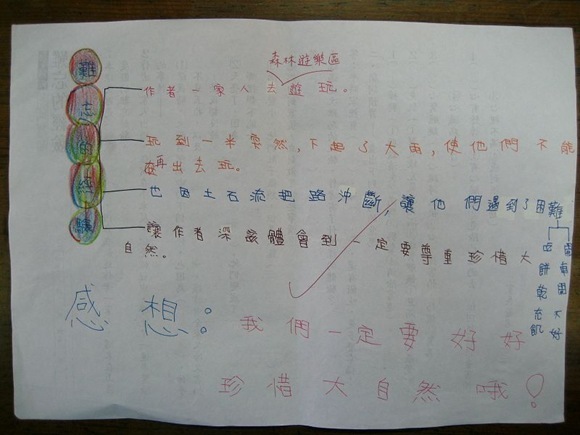 難忘的經驗
森林遊樂區
作者一家人去遊玩。
玩到一半突然,下起了大雨,使他們不能
再出去玩。
也因土石流把路沖斷,讓他們遇到了困難
餅乾充飢
不好
讓作者深體會到一定要尊重珍惜大
自然。
感想:
我們一定要好好
珍惜大自然哦!